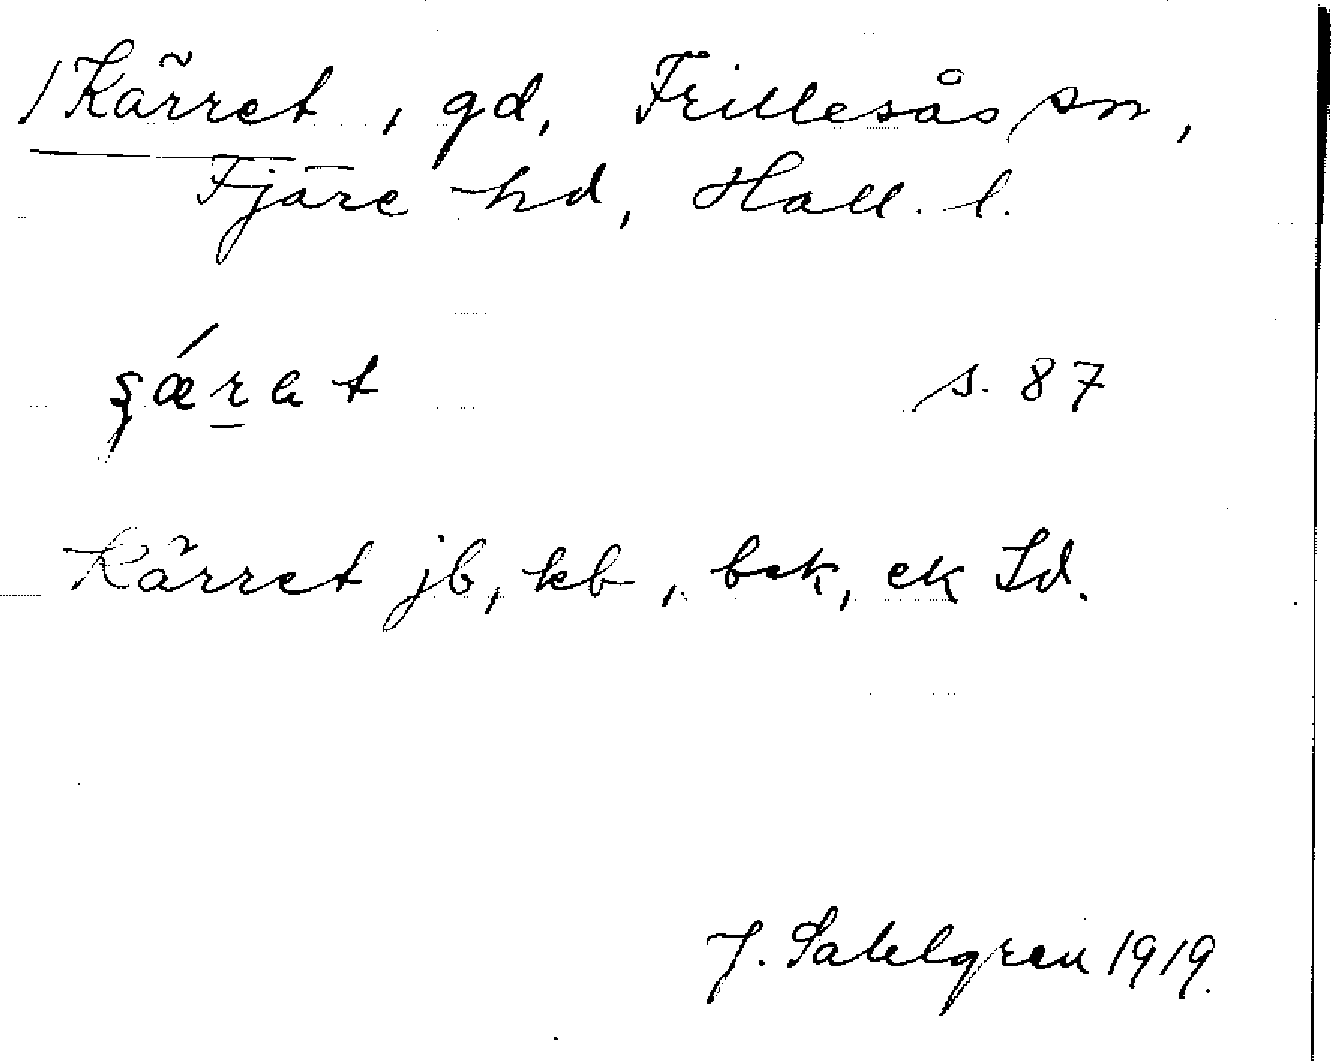 /Kärret, gd, Frillesås sn,
Fjäre hd, Hall. l.
ʂǽrat s. 87
Kärret jb, kb, bek, ek Sd.
J. Sahlgren 1919.